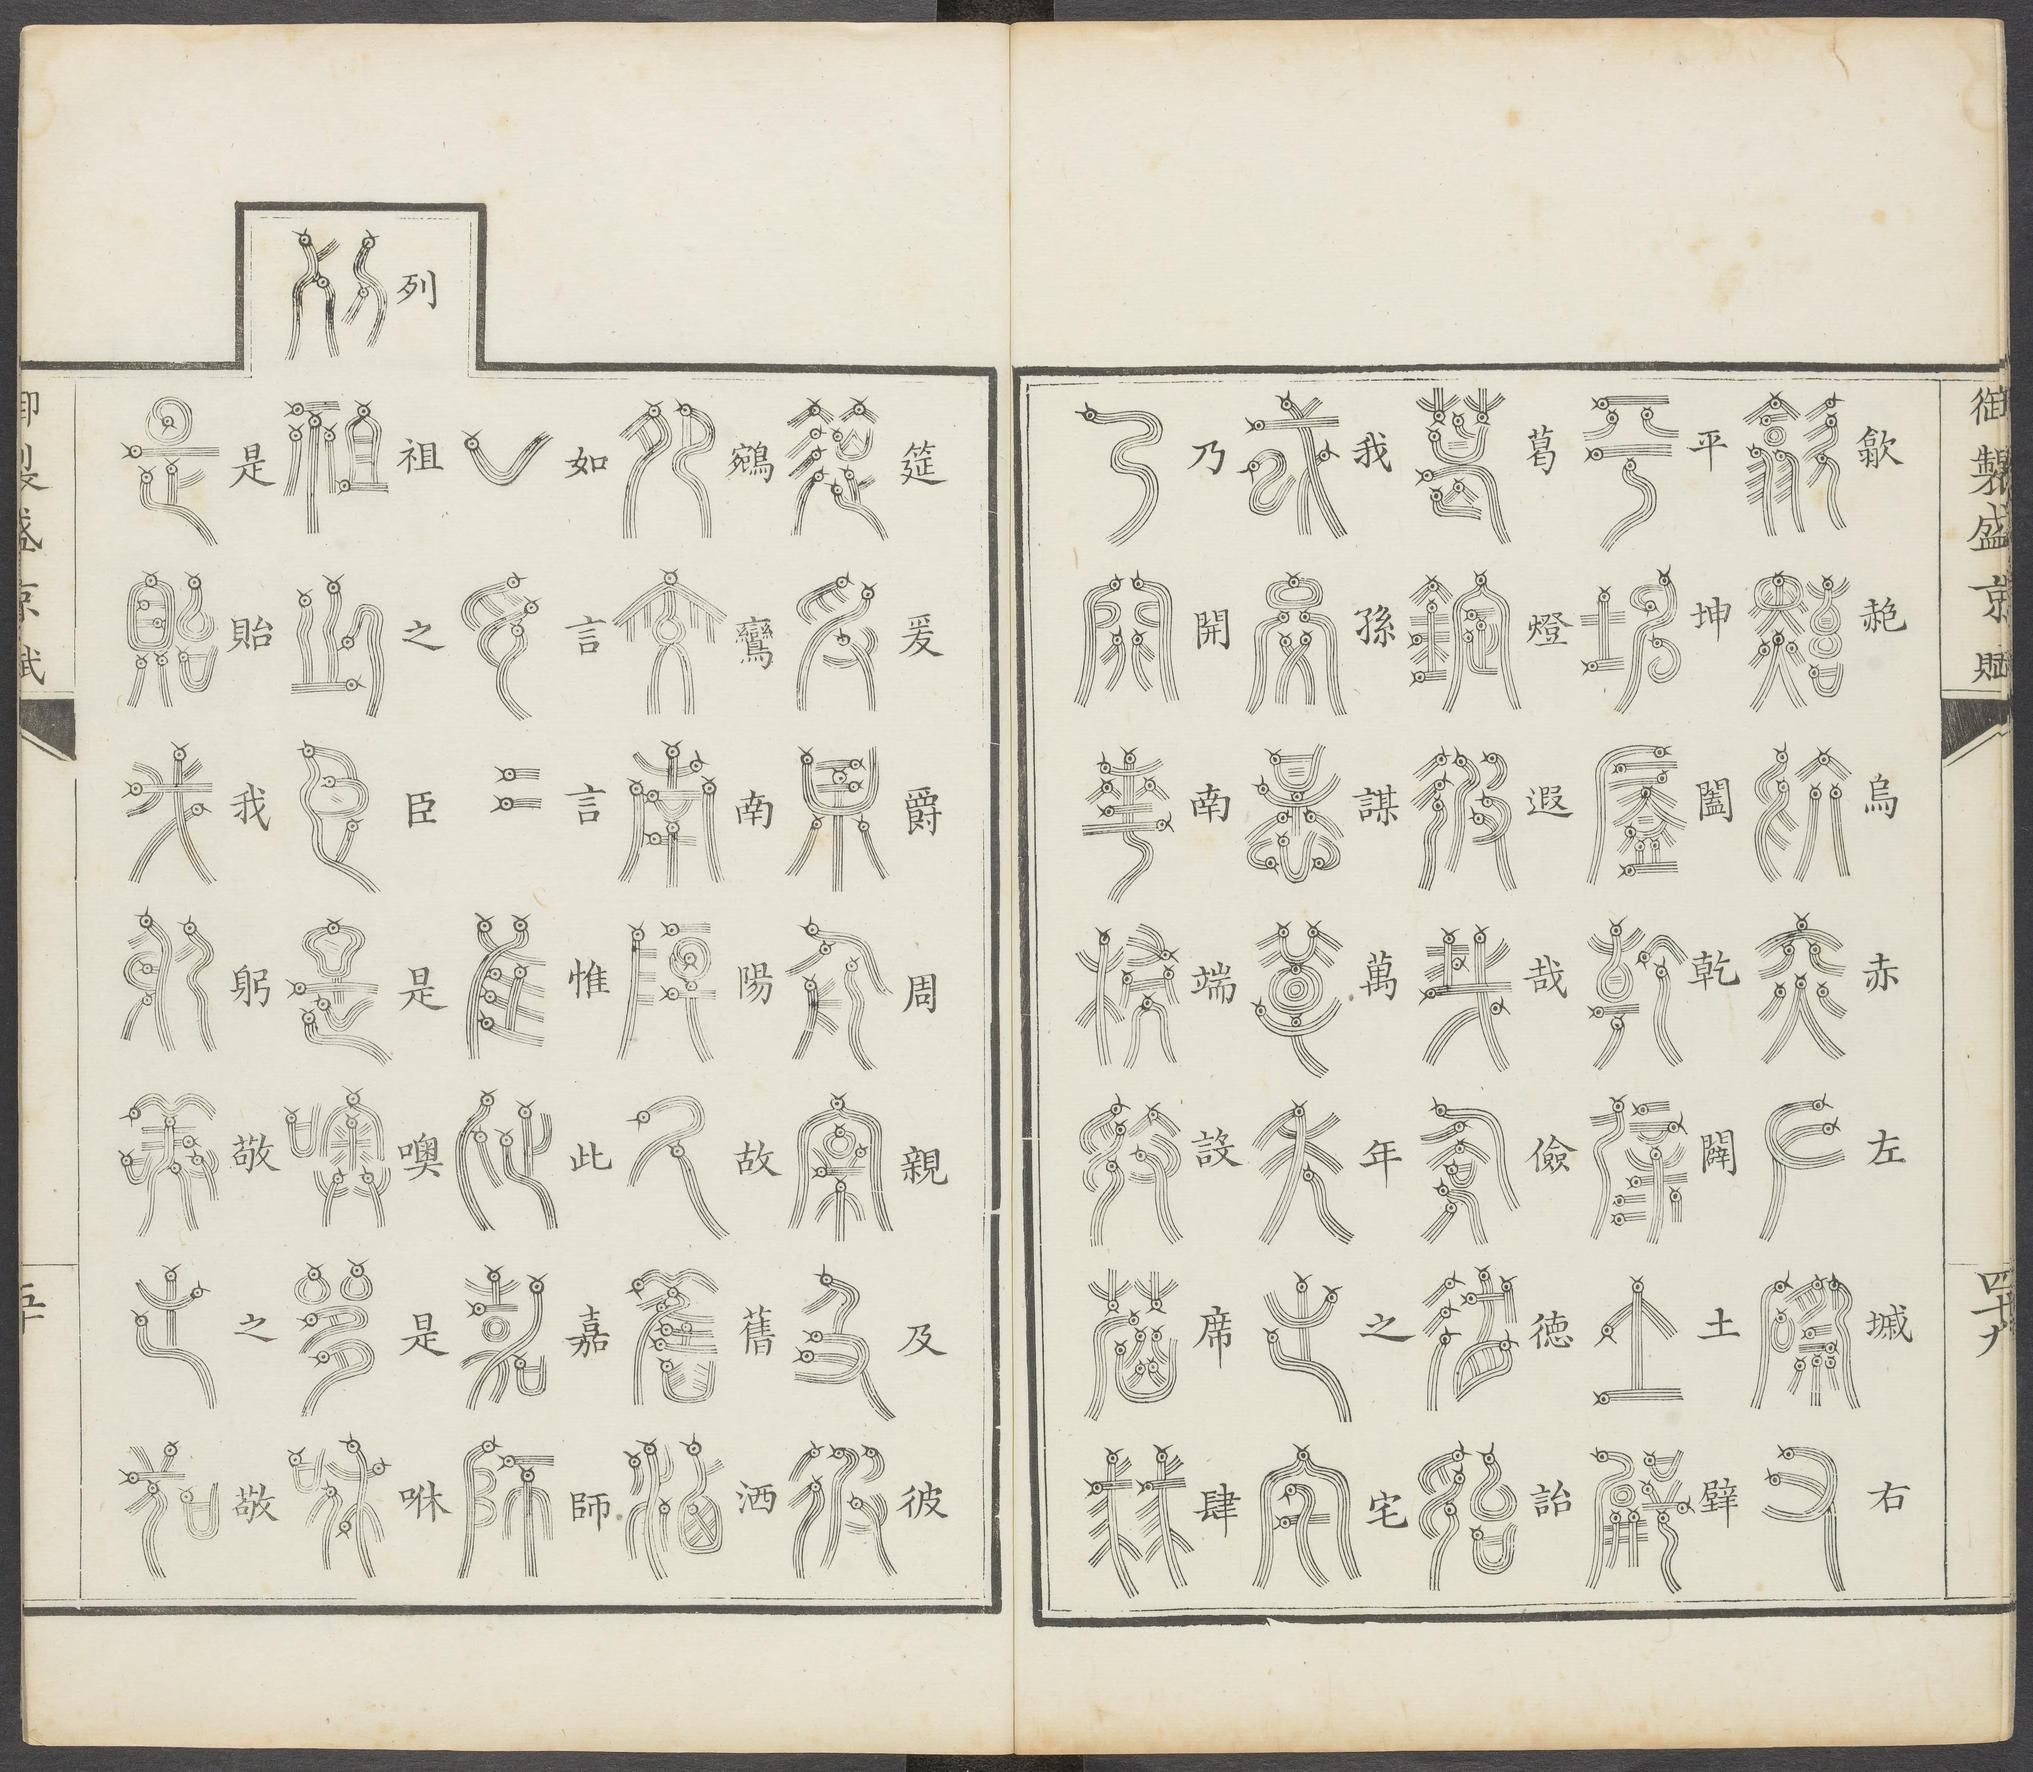 御製盛京賦
四十九
歙赩烏赤左墄右
平坤闔乾闢土壁
葛燈遐哉儉徳詒
我孫謀萬年之宅
乃開南端設席肆
筵爰爵周親及彼
鵷鸞南陽故舊洒
如言言惟此嘉師
列祖之臣是噢是咻
是貽我躬敬之敬
御製盛京賦
五十